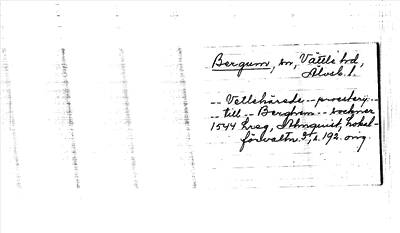 Bergum, sn, Vättle hd,
Älvsb. l.
-- Vettlehärads -- prosterij --
-- till -- Berghem -- sochner
1544 h reg, Almquist, Lokal-
förvaltn. 2, s. 192. orig.